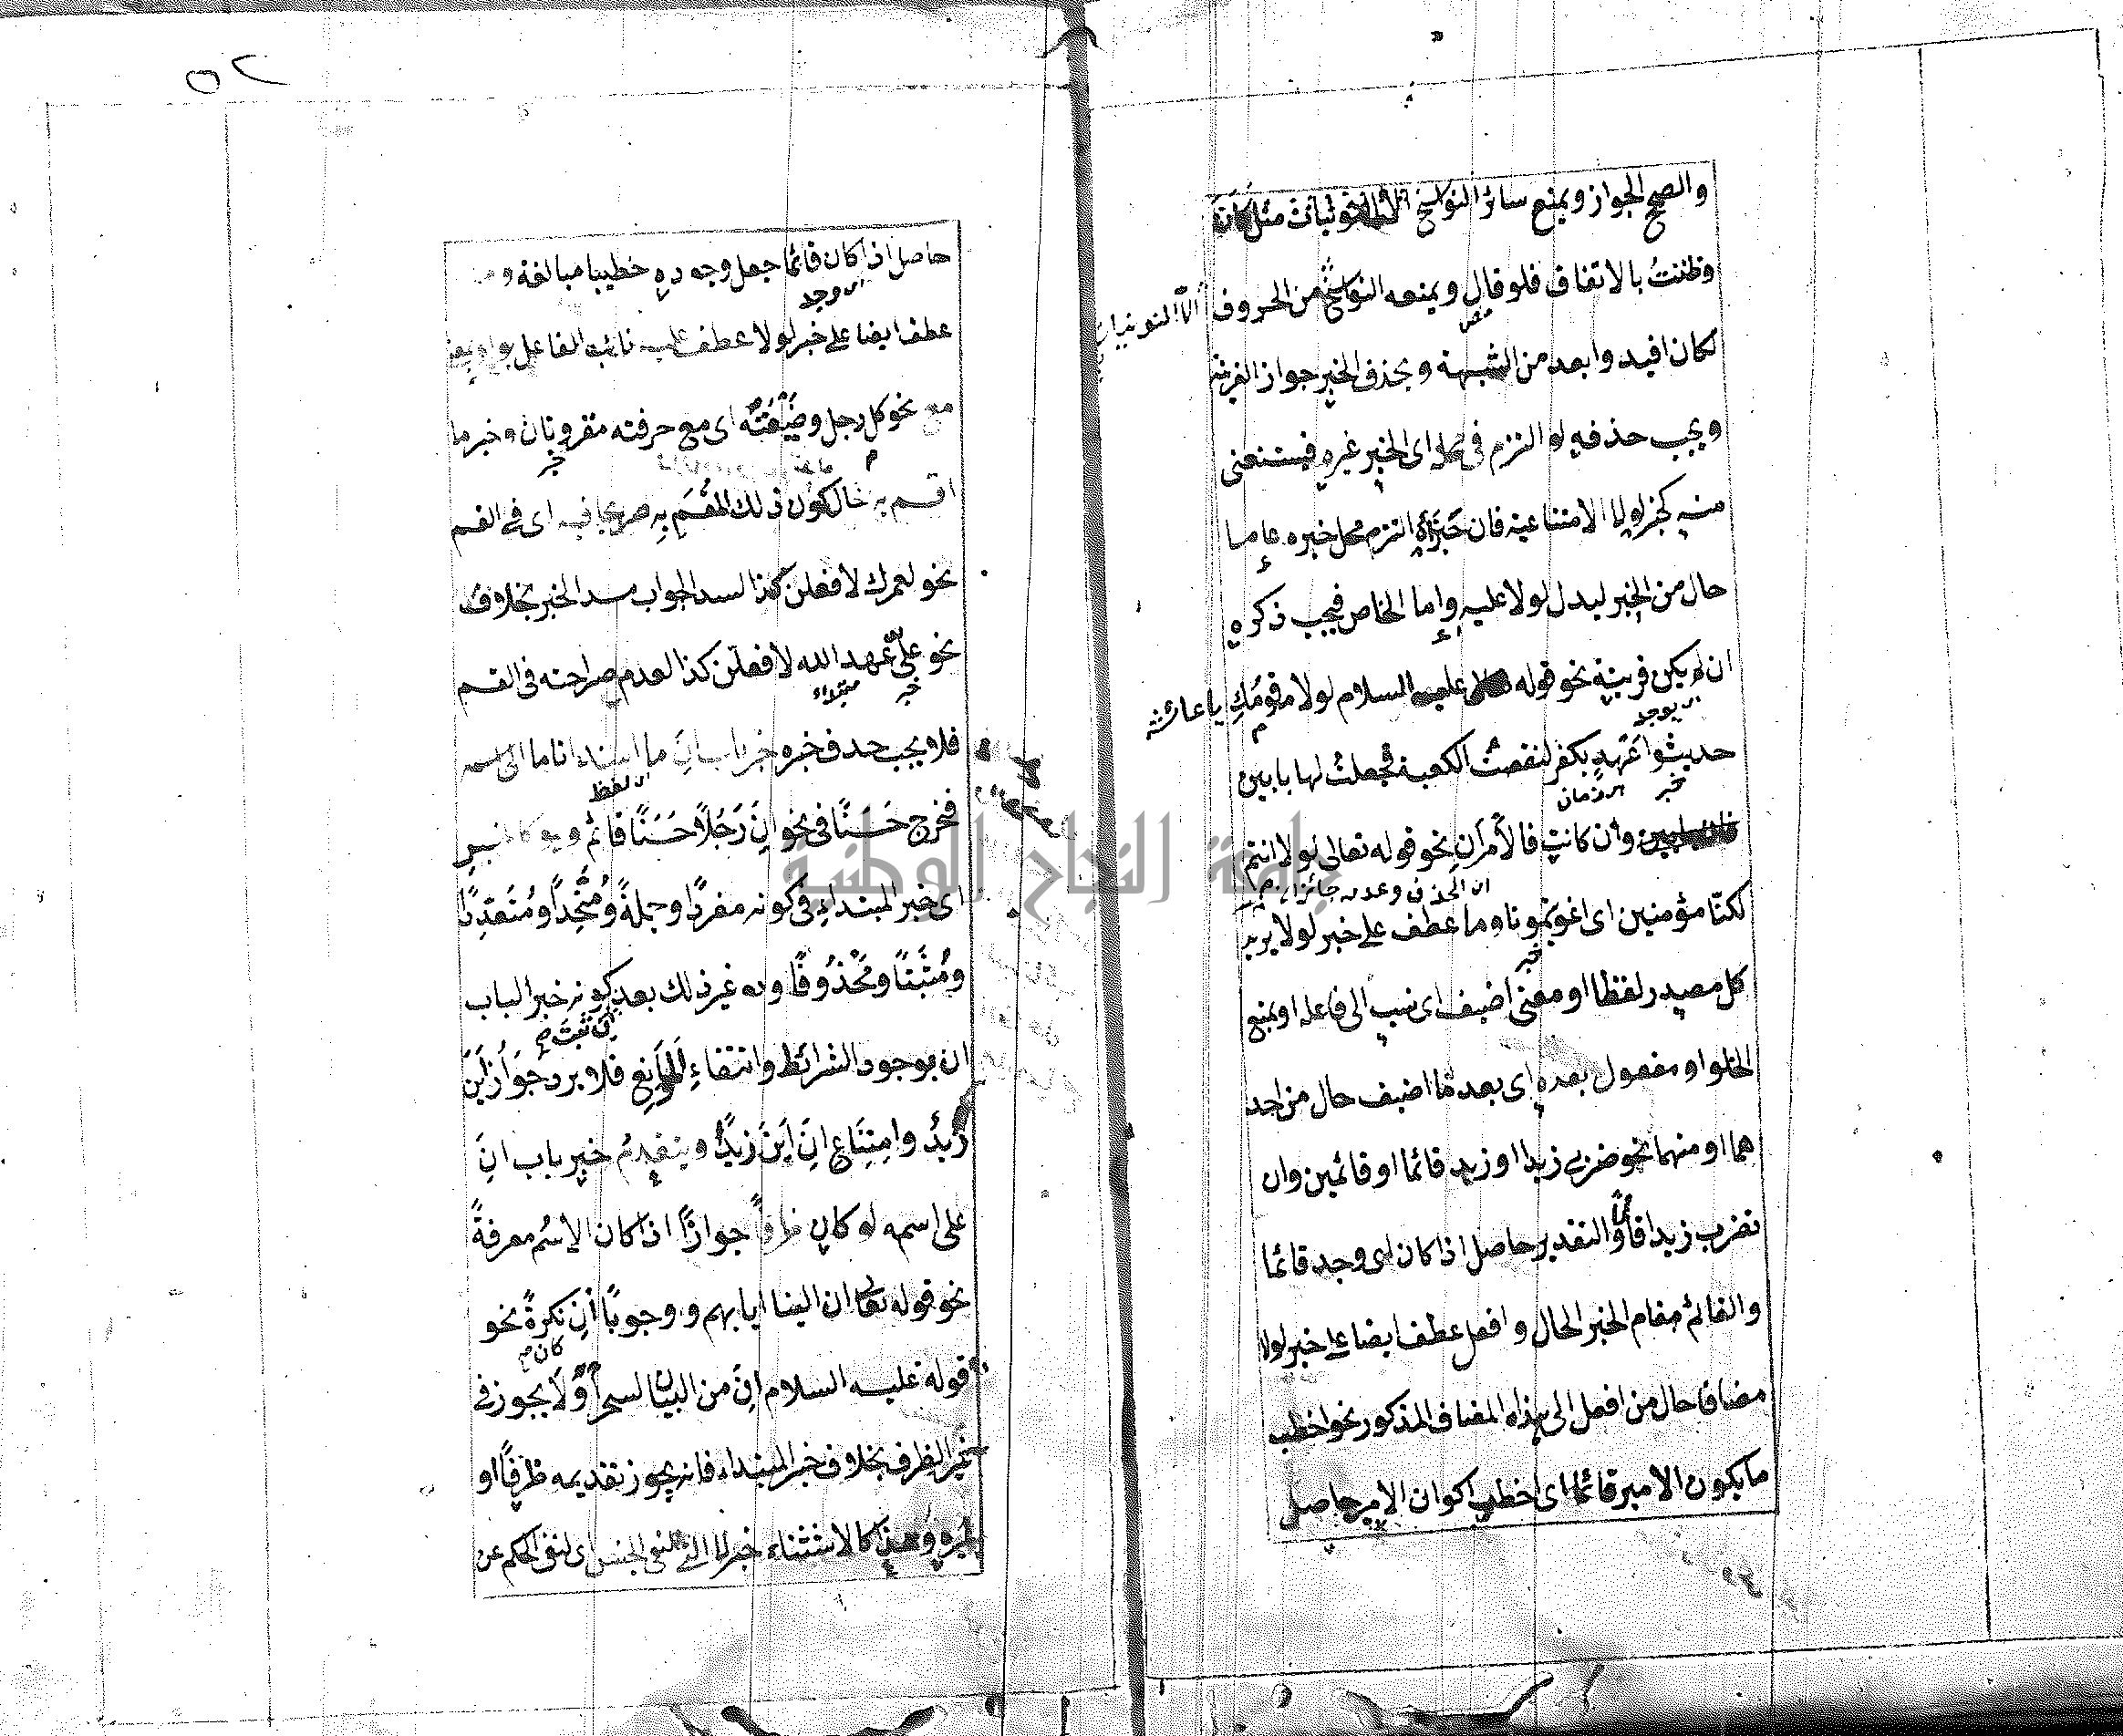 والصحيح الجواز ويمنع سائر النواسخ مثل كان
وظننتُ بالاتفاق فلو قال ويمنعه النواسخ من الحروف الا النونيات
لكان افيد وابعد من الشبهة وبحذف الخبر جواز القرينة
ويجب حذفه لو التزم في محله اى الخبر غيره فيستغنى
منه كخبر لولا الامتناعية فان خبره التزم محل خبره عاما
حال من الخبر ليدل لولا عليه واما الخاص فيجب ذكره
ان لم يكن قرينة نحو قوله عليه السلام لولا قومُكِ يا عائشة
ان يوجد
حديثوا عَهْدٍ بكفر لنقضتُ الكعبة فجعلت لها بابين
خبر اى زمان
وان كانت فالأمران نحو قوله تعالى لولا انتم
اى الحذف وعدمه جائزان
لكنّا مؤمنين اى اغويتمونا وما عطف على خبر لولا يريد
خبر
كل مصدر لفظا او معنى اضيف اى نسب الى فاعله او بمنع
الخلو او مفعول بعده اى بعد ما اضيف حال من احد
هما او منهما نحو ضربى زيدا او زيد قائما او قائمين وان
تضرب زيدا قائما والتقدير حاصل اذا كان اى وجد قائما
والقائم مقام الخبر الحال وافعل عطف ايضا على خبر لولا
مضافا حال من افعل الى هذا المضاف المذكور نحو اخطب
ما يكون الامير قائما اى اخطب اكوان الامير حاصل
٥٢
حاصل اذا كان قائما جعل وجوده خطيبا مبالغة وما
اى وجد
عطف ايضا على خبر لولا عطف عليه نائب الفاعل بواو بمعنى
مع نحو كل رجل وضَيْعَتُه اى مع حرفته مقرونان وخبر ما
خبر
اقسم به حال كون ذلك المُقْسَمِ به صريحا فيه اى في القسم
نحو لعمرك لافعلن كذا لسد الجواب مسد الخبر بخلاف
نحو علىّ عهد الله لافعلن كذا لعدم صراحته في القسم
خبر مبتداء
فلا يجب حذف خبره خبر باب انّ ما اسند اناما الى اسمه
اى لفظ
فخرج حَسَنًا في نحو انّ رَجُلاً حَسَنًا قائم وهو كخبر
اى خبر المبتداء في كونه مفردًا وجملةً ومُتّحِدًا ومُتَعَدِدًا
ومُثْبَتًا ومَحْذُوفًا وغير ذلك بعد كونه خبر الباب
ان بوجود الشرائط وانتفاءِ الموانع فلا يرد جَوَازُ اَيْنَ
زيدٌ وامتِنَاعِ انّ اَيْنَ زيدًا ويتقدم خبر باب انّ
على اسمه لو كان ظرفًا جوازًا اذا كان الاسمُ معرفةً
نحو قوله تعالى ان الينا ايابهم ووجوبًا ان نكرةً نحو
كان
قوله عليه السلام انّ من البيان لسحرًا ولا يجوز في
غير الظرف بخلاف خبر المبتداء فانه يجوز تقديمه ظرفًا او
غيره وهذا كالاستثناء خبر لا التى لنفى الجنس اى لنفى الحكم عن
جامعة النجاح الوطنية